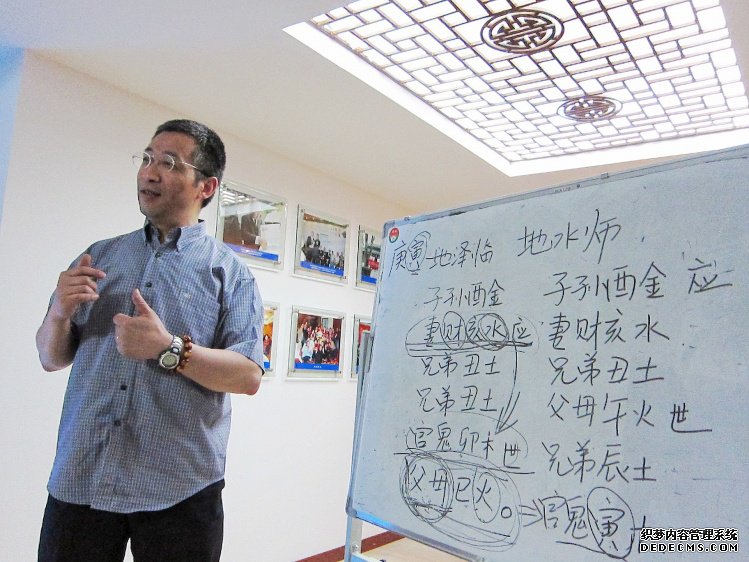 庚寅 地泽临 地水师
子孙酉金 子孙酉金 应
妻财亥水 应 妻财亥水
兄弟丑土 兄弟丑土
兄弟丑土 父母午火 世
官鬼卯木 世 兄弟辰土
父母巳火 官鬼寅
织梦内容管理系统
DEDECMS.COM